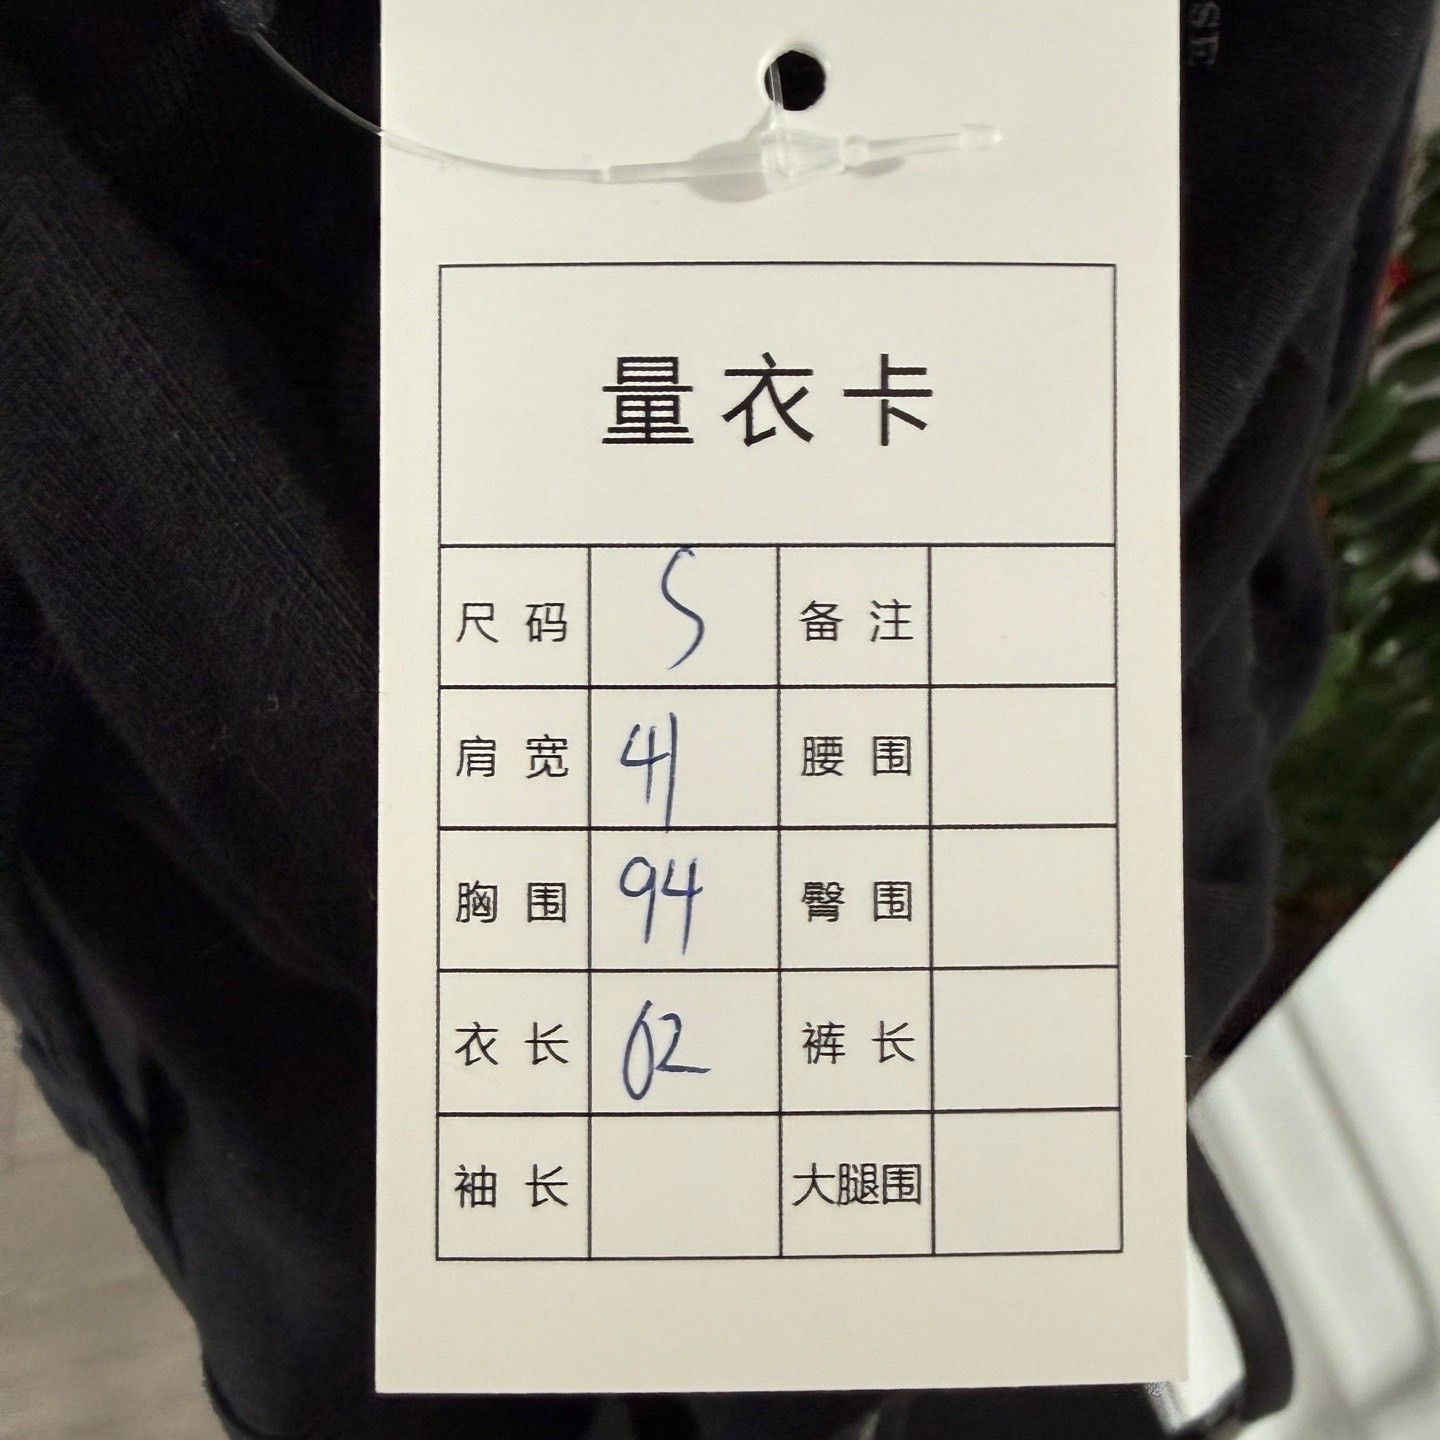 SE
量衣卡
尺码 S 备注
肩宽 41 腰围
胸围 94 臀围
衣长 62 裤长
袖长 大腿围